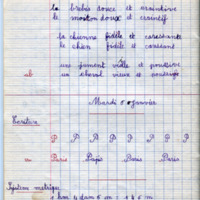 la brebis douce et craintive
le mouton doux et craintif
la chienne fidèle et caressante
le chien fidèle et caressant
une jument vieille et poussive
ab un cheval vieux et poussif
Mardi 5 Janvier
Ecriture
P P P P P P P
Paris Paris Paris Paris
Système métrique
1 km 4 dam 5 m =